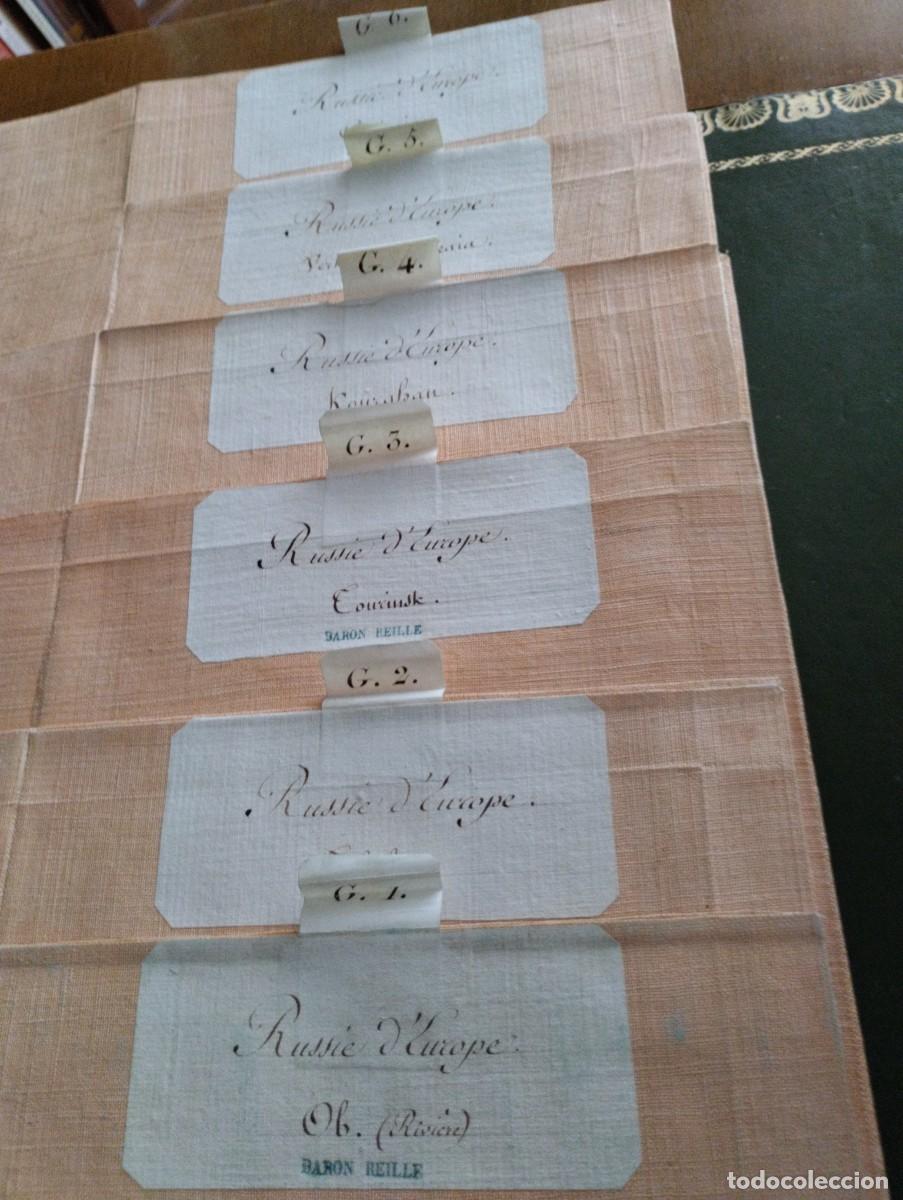 G. 6.
Russie d'Europe.
G. 5.
Russie d'Europe.
G. 4.
Russie d'Europe.
G. 3.
Russie d'Europe.
Tourinsk.
BARON REILLE
G. 2.
Russie d'Europe.
G. 1.
Russie d'Europe.
Ob. (Rivière)
BARON REILLE
todocoleccion